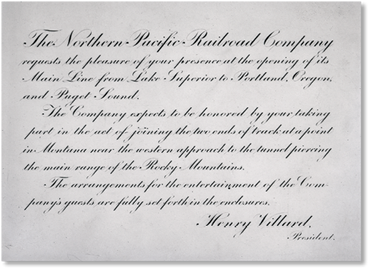 The Northern Pacific Railroad Company
requests the pleasure of your presence at the opening of its
Main Line from Lake Superior to Portland, Oregon,
and Puget Sound.
The Company expects to be honored by your taking
part in the act of joining the two ends of track at a point
in Montana near the western approach to the tunnel piercing
the main range of the Rocky Mountains.
The arrangements for the entertainment of the Com-
pany's guests are fully set forth in the enclosures.
Henry Villard,
President.